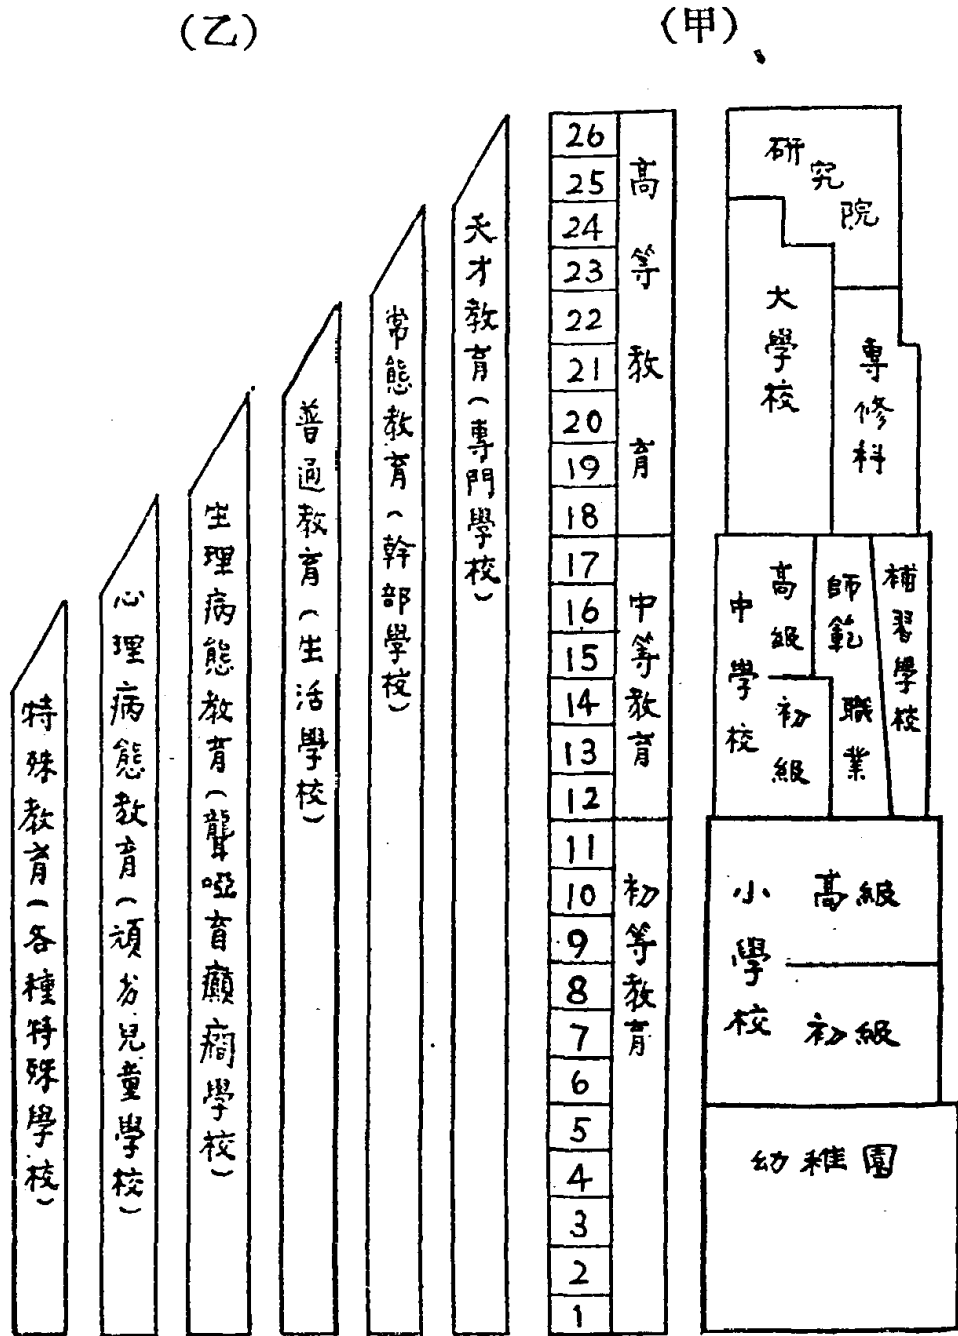 (甲)
研究院
大學校
專修科
中學校
高級
初級
師範
職業
補習學校
小學校
高級
初級
幼稚園
高等教育
中等教育
初等教育
26
25
24
23
22
21
20
19
18
17
16
15
14
13
12
11
10
9
8
7
6
5
4
3
2
1
(乙)
天才教育(專門學校)
常態教育(幹部學校)
普通教育(生活學校)
生理病態教育(聾啞盲癲癇學校)
心理病態教育(頑劣兒童學校)
特殊教育(各種特殊學校)